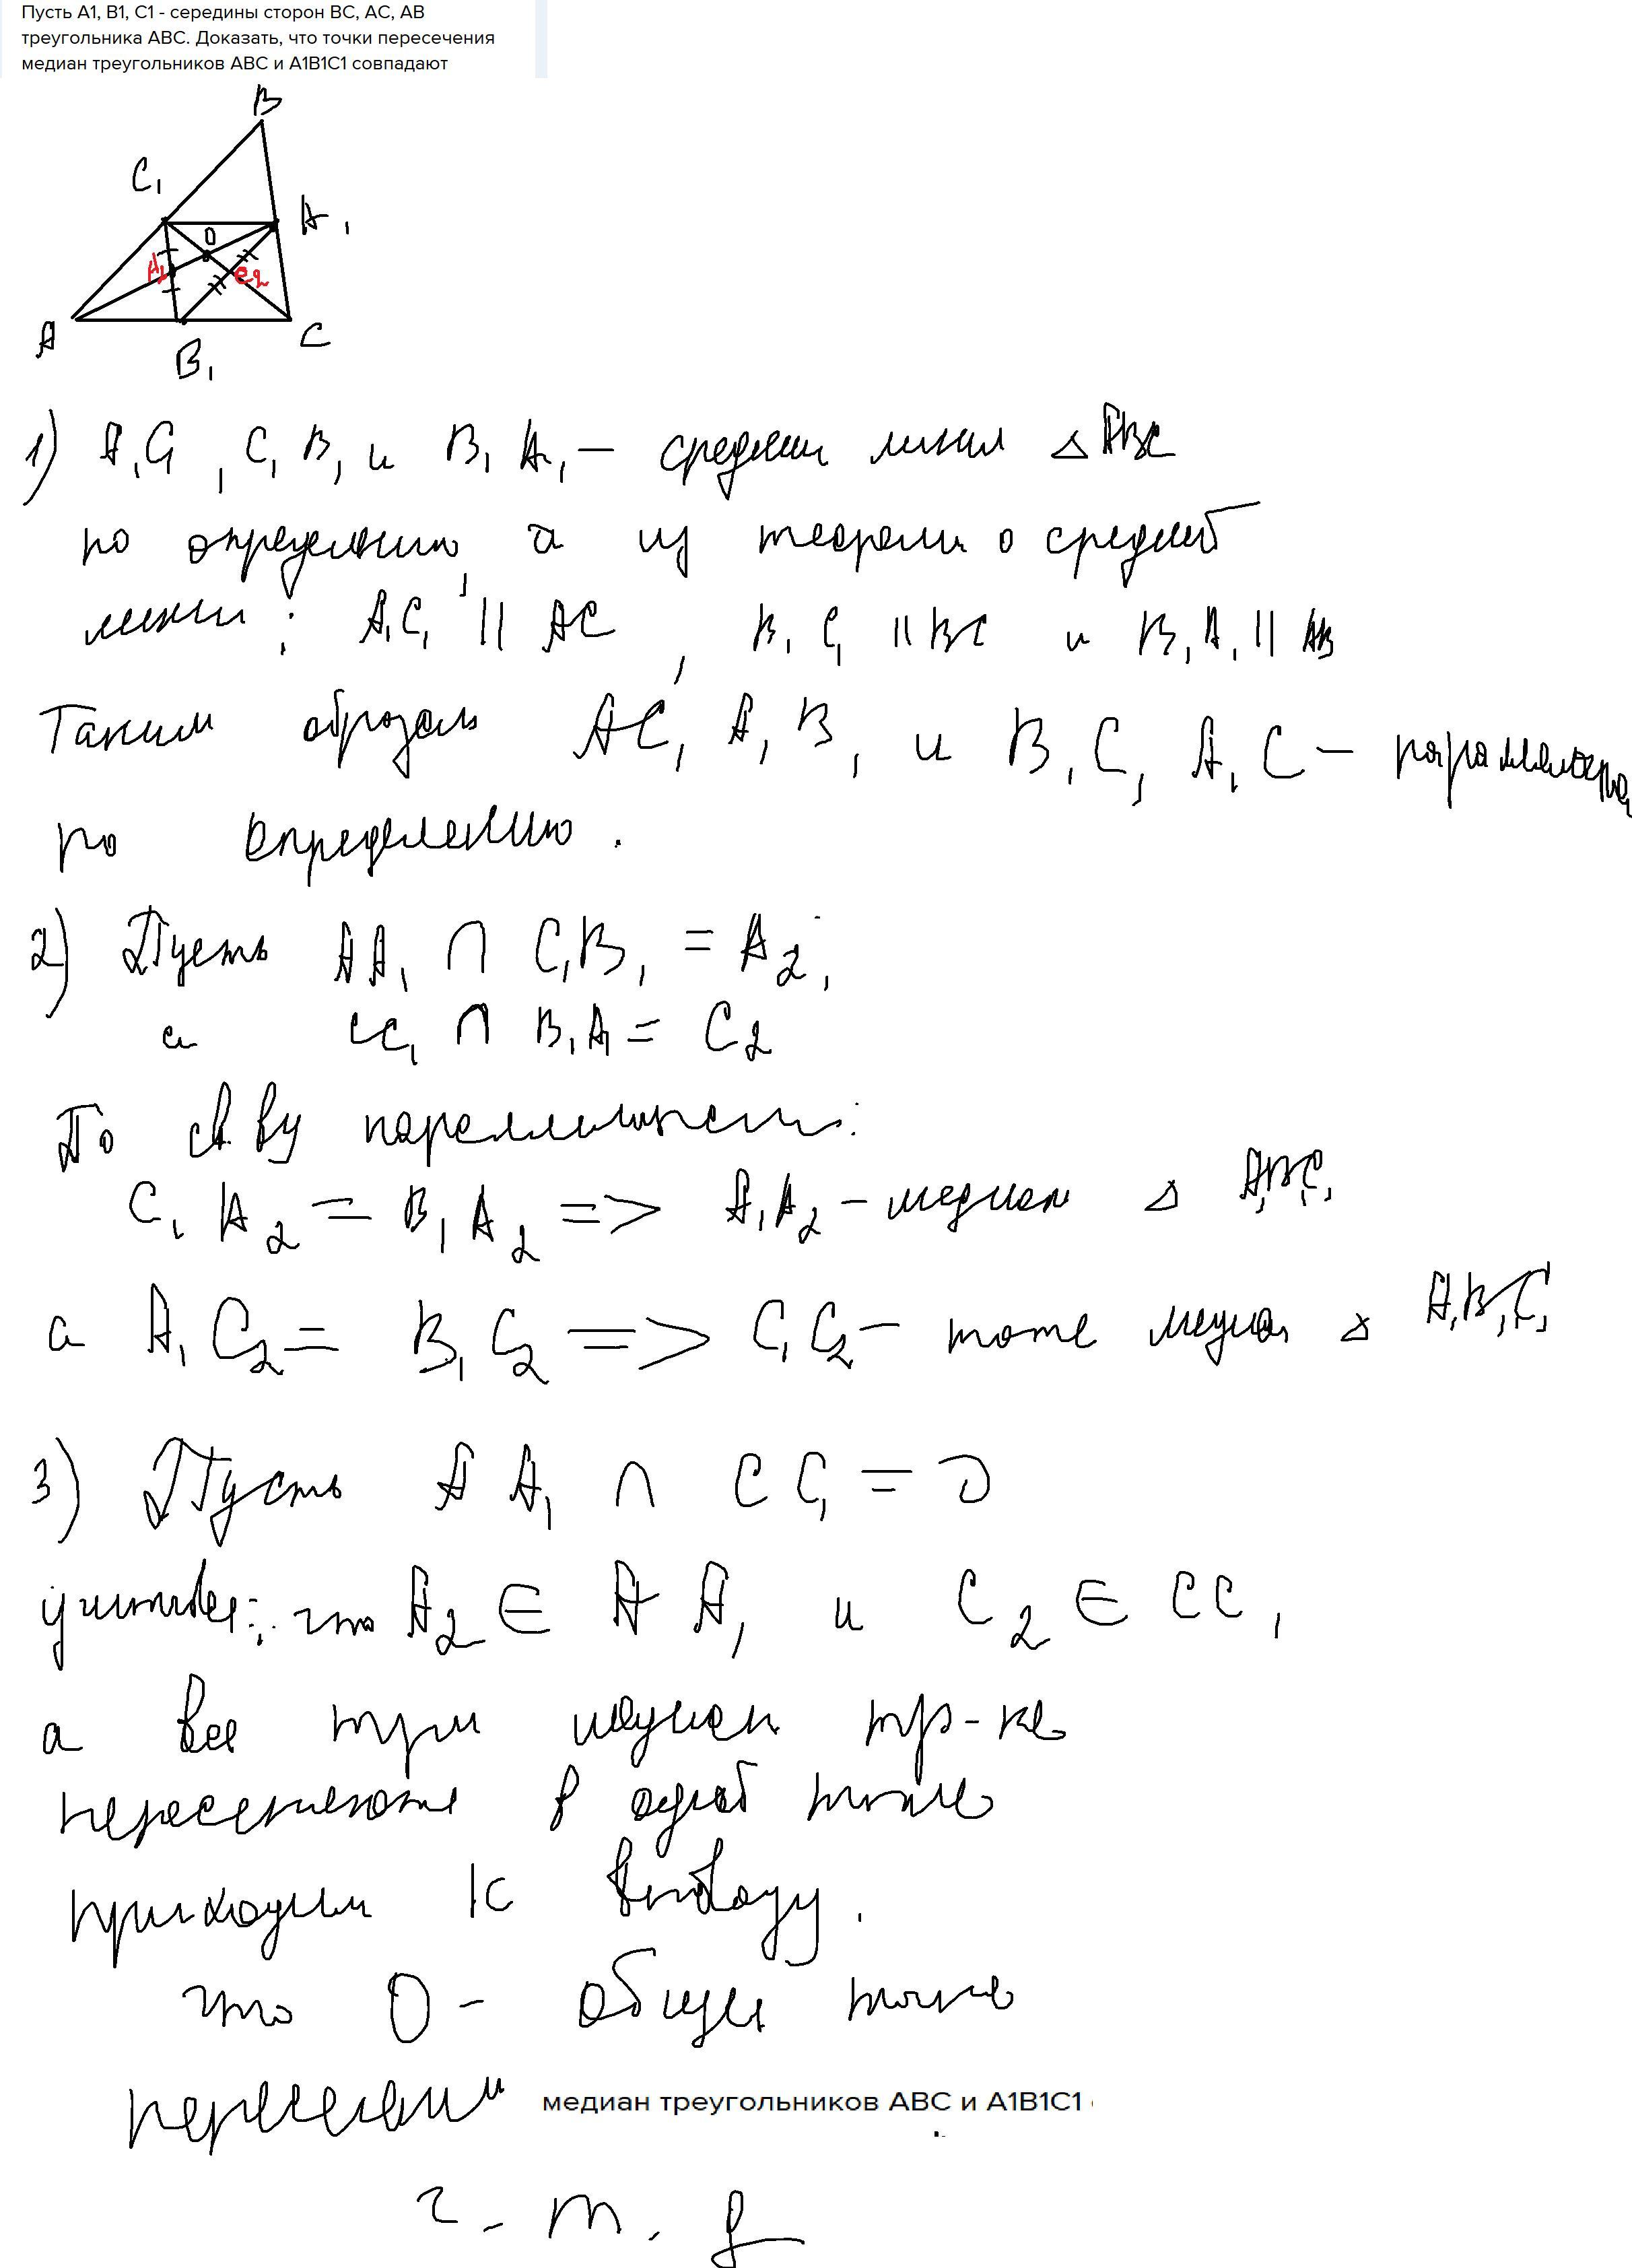 Пусть А1, В1, С1 - середины сторон ВС, АС, АВ
треугольника АВС. Доказать, что точки пересечения
медиан треугольников АВС и А1В1С1 совпадают
B
C₁
A₁
O
A₂
C₂
A
B₁
C
1) A₁C₁, C₁B₁ и B₁A₁ — средние линии △ABC
по определению, а из теоремы о средней
линии: A₁C₁ || AC, B₁C₁ || BC и B₁A₁ || AB
Таким образом AC₁A₁B₁ и B₁C₁A₁C —
по определению.
2) Пусть AA₁ ∩ C₁B₁ = A₂,
а CC₁ ∩ B₁A₁ = C₂
По св ву
C₁A₂ = B₁A₂ => A₁A₂ — медиана △ A₁B₁C₁
а A₁C₂ = B₁C₂ => C₁C₂ — тоже △ A₁B₁C₁
3) Пусть AA₁ ∩ CC₁ = O
что A₂ ∈ AA₁ и C₂ ∈ CC₁
а все три медианы тр-ка
пересекаются в одной точке
приходим к выводу.
что O — общая точка
пересечения медиан треугольников АВС и А1В1С1
ч. т. д